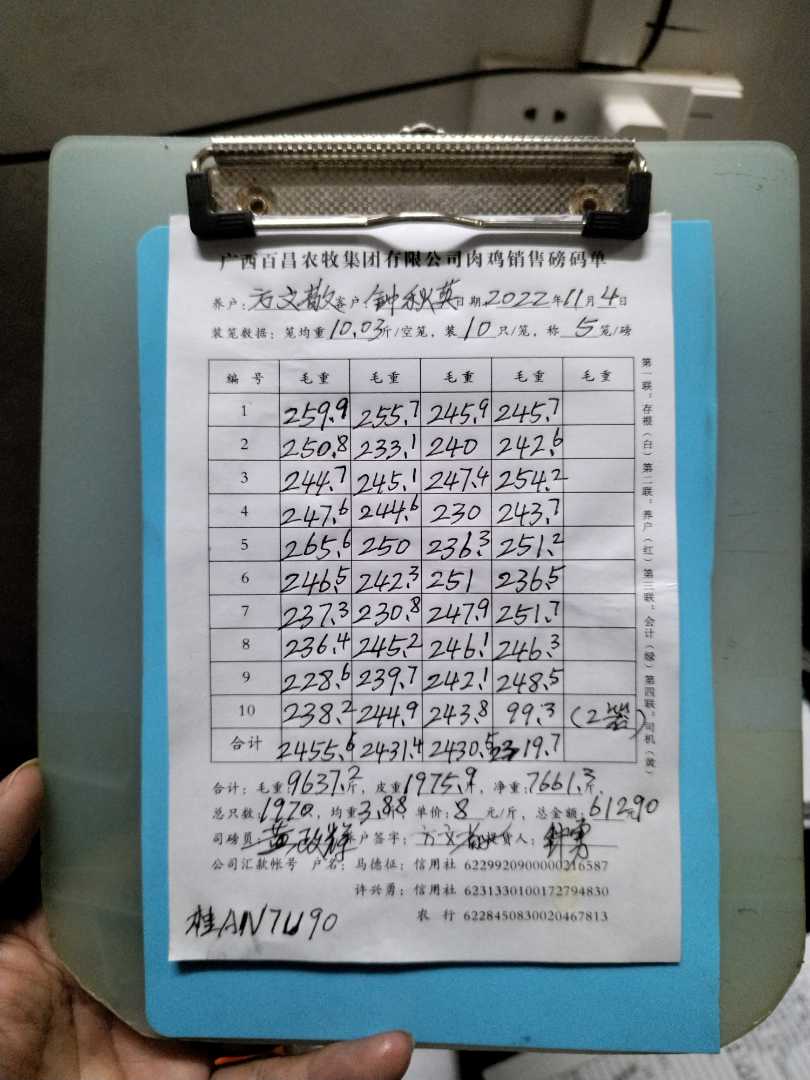 广西百昌农牧集团有限公司肉鸡销售磅码单
养户:方文敢客户:钟秋英日期:2022年11月4日
装笼数据:笼均重10.03斤/空笼、装10只/笼,称5笼/磅
编号 毛重 毛重 毛重 毛重 毛重
1 259.9 255.7 245.9 245.7
2 250.8 233.1 240 242.6
3 244.7 245.1 247.4 254.2
4 247.6 244.6 230 243.7
5 265.6 250 236.3 251.2
6 246.5 242.3 251 236.5
7 237.3 230.8 247.9 251.7
8 236.4 245.2 246.1 246.3
9 228.6 239.7 242.1 248.5
10 238.2 244.9 243.8 99.3 (2笼)
合计 2455.6 2431.4 2430.5 2319.7
合计:毛重:9637.2斤,皮重1975.9斤,净重:7661.3斤,
总只数:1970,均重3.88斤,单价:8元/斤,总金额:61290
司磅员:黄政辉养户签字:方文敢提货人:钟勇
公司汇款帐号 户名:马德征:信用社 6229920900000216587
许兴勇:信用社 6231330100172794830
农 行 6228450830020467813
桂AN7U90
第一联:存根(白)第二联:养户(红)第三联:会计(绿)第四联:司机(黄)